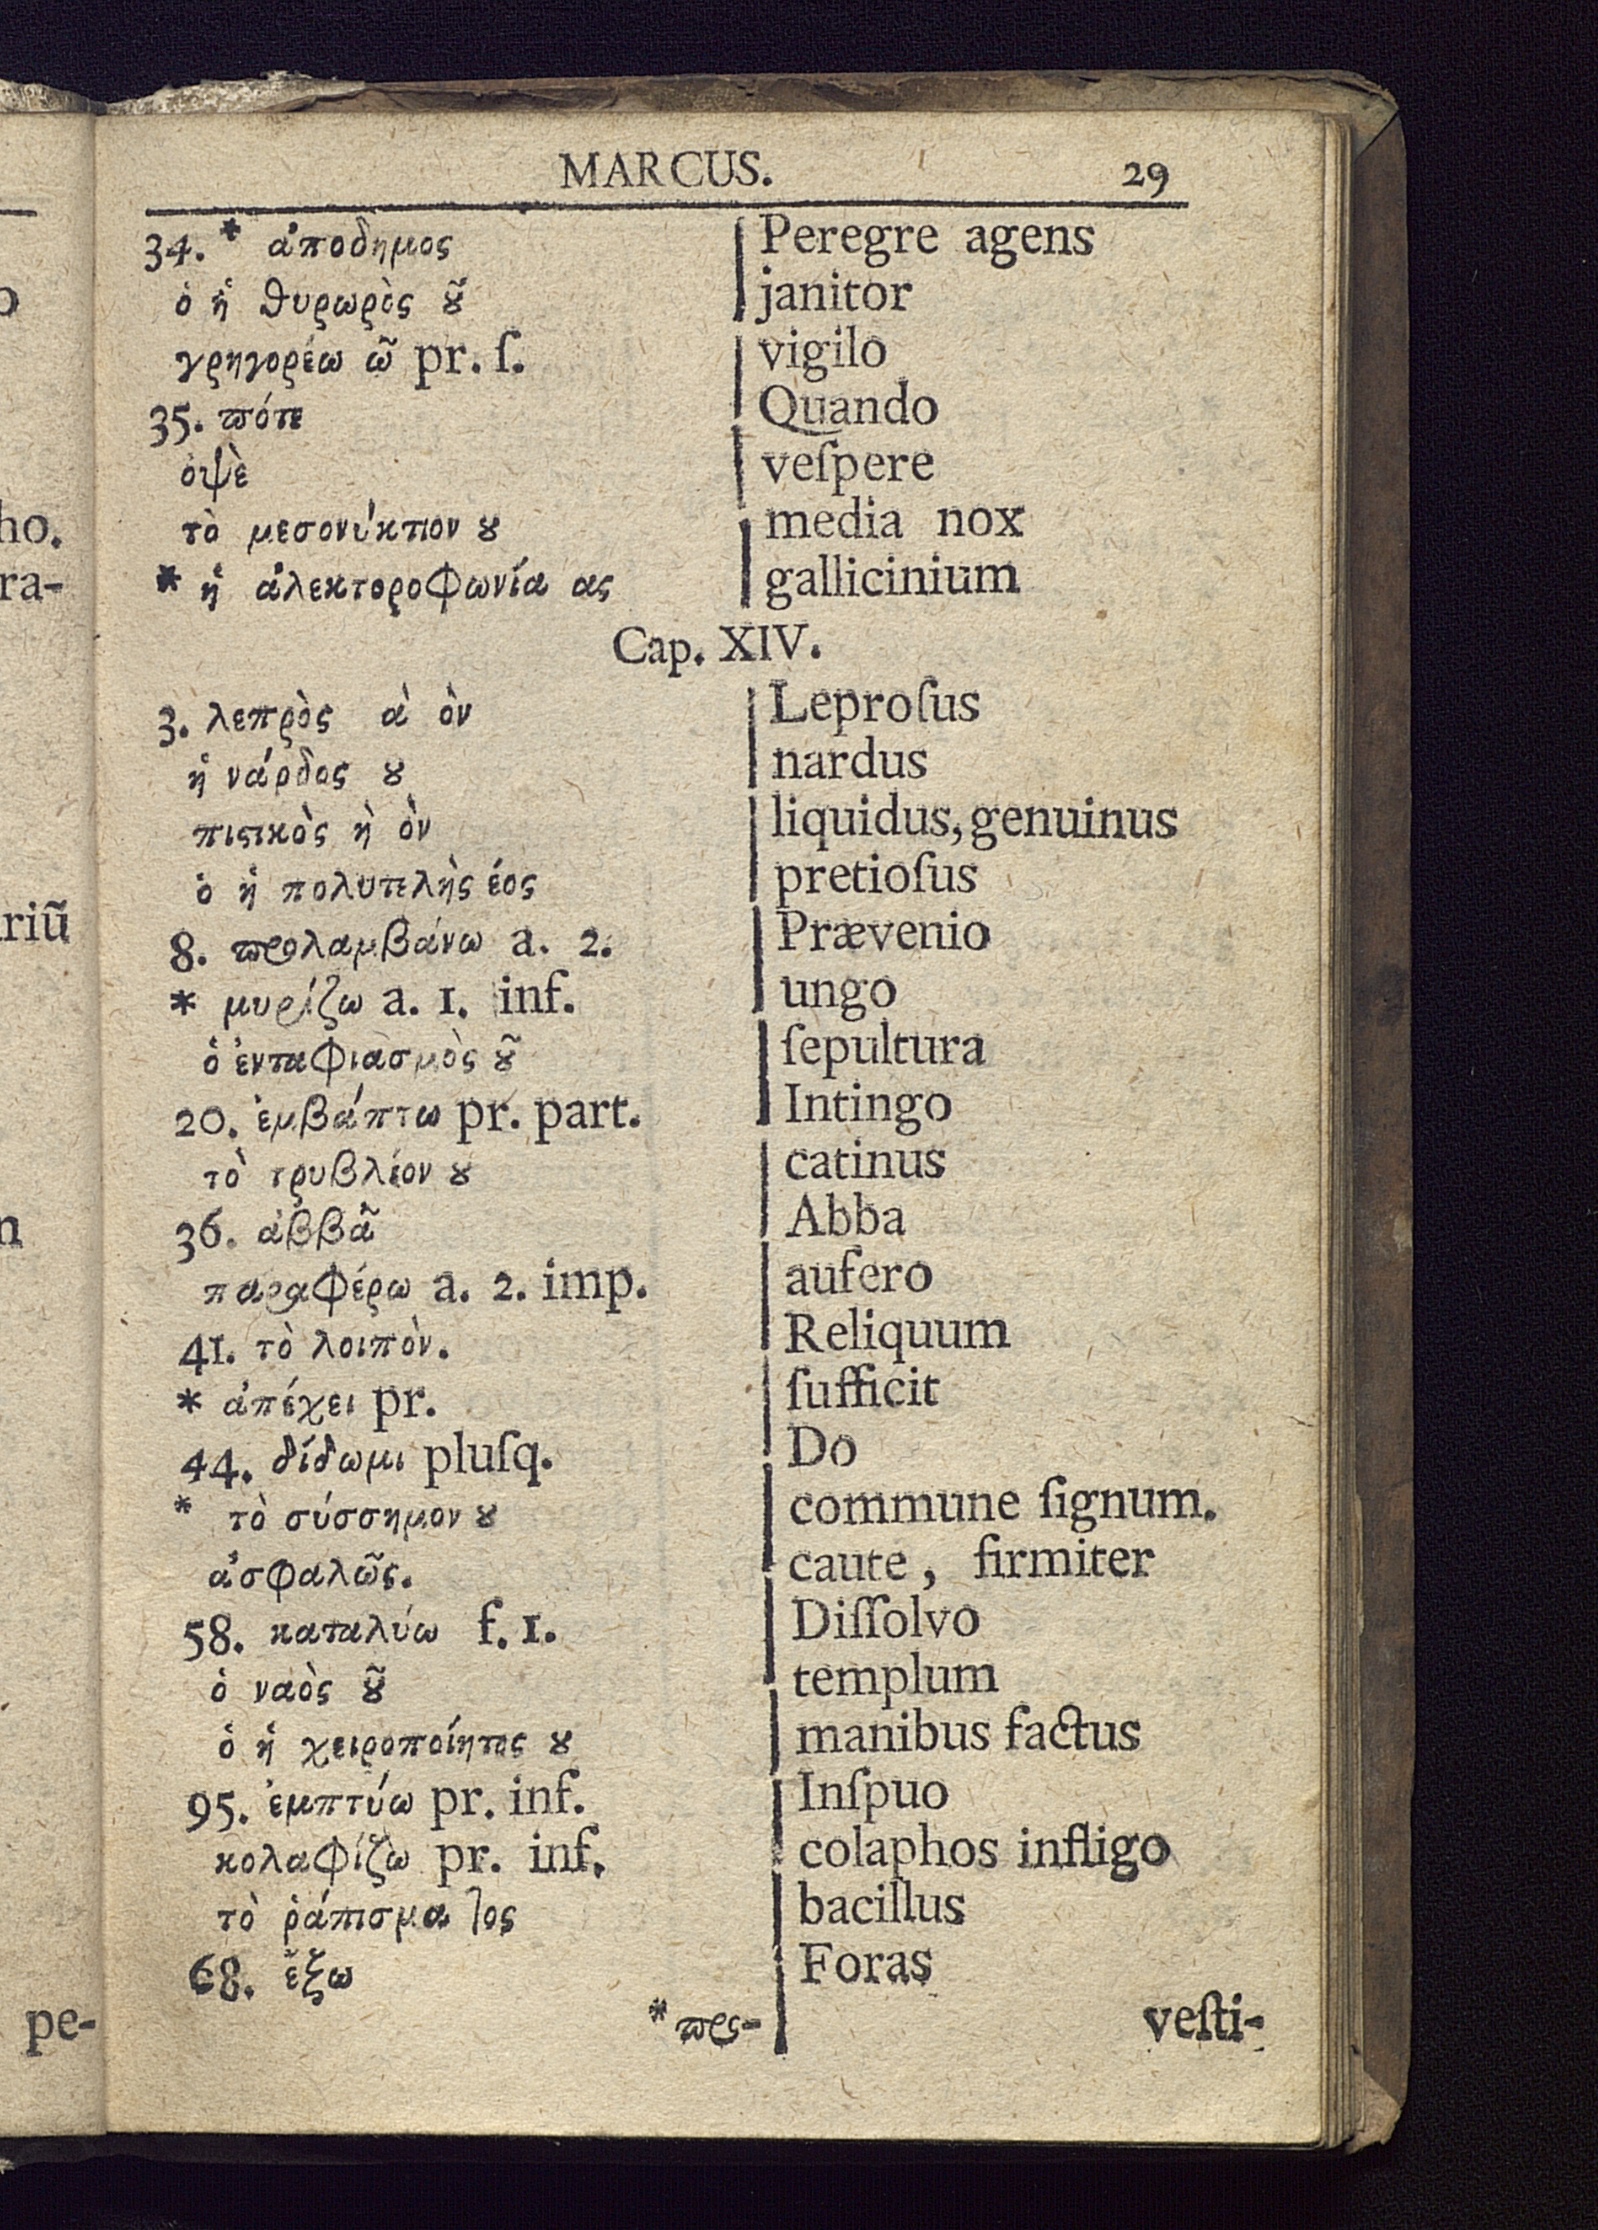 MARCUS. 29
34. * ἀποδημος Peregre agens
ὁ ἡ θυρωρὸς ȣ͂ janitor
γρηγορέω ῶ pr. ſ. vigilo
35. ϖότε Quando
ὀψὲ veſpere
τὸ μεσονύκτιον ȣ media nox
* ἡ ἀλεκτοροφωνία ας gallicinium
Cap. XIV.
3. λεπρὸς ὰ ὸν Leproſus
ἡ νάρδος ȣ nardus
πιϛικὸς ὴ ὸν liquidus, genuinus
ὁ ἡ πολυτελὴς έος pretioſus
8. ϖρολαμβάνω a. 2. Prævenio
* μυρίζω a. 1. inf. ungo
ὁ ἐνταφιασμὸς ȣ͂ ſepultura
20. ἐμβάπτω pr. part. Intingo
τὸ τρυβλίον ȣ catinus
36. ἀββᾶ Abba
παραφέρω a. 2. imp. aufero
41. τὸ λοιπὸν. Reliquum
* ἀπέχει pr. ſufficit
44. δίδωμι pluſq. Do
* τὸ σύσσημον ȣ commune ſignum.
ἀσφαλῶς. caute, firmiter
58. καταλύω f. 1. Diſſolvo
ὁ ναὸς ȣ͂ templum
ὁ ἡ χειροποίητος ȣ manibus factus
95. ἐμπτύω pr. inf. Inſpuo
κολαφίζω pr. inf. colaphos infligo
τὸ ῥάπισμα τος bacillus
68. ἔξω Foras
* ϖρς- veſti-
ho.
ra-
riũ
n
pe-